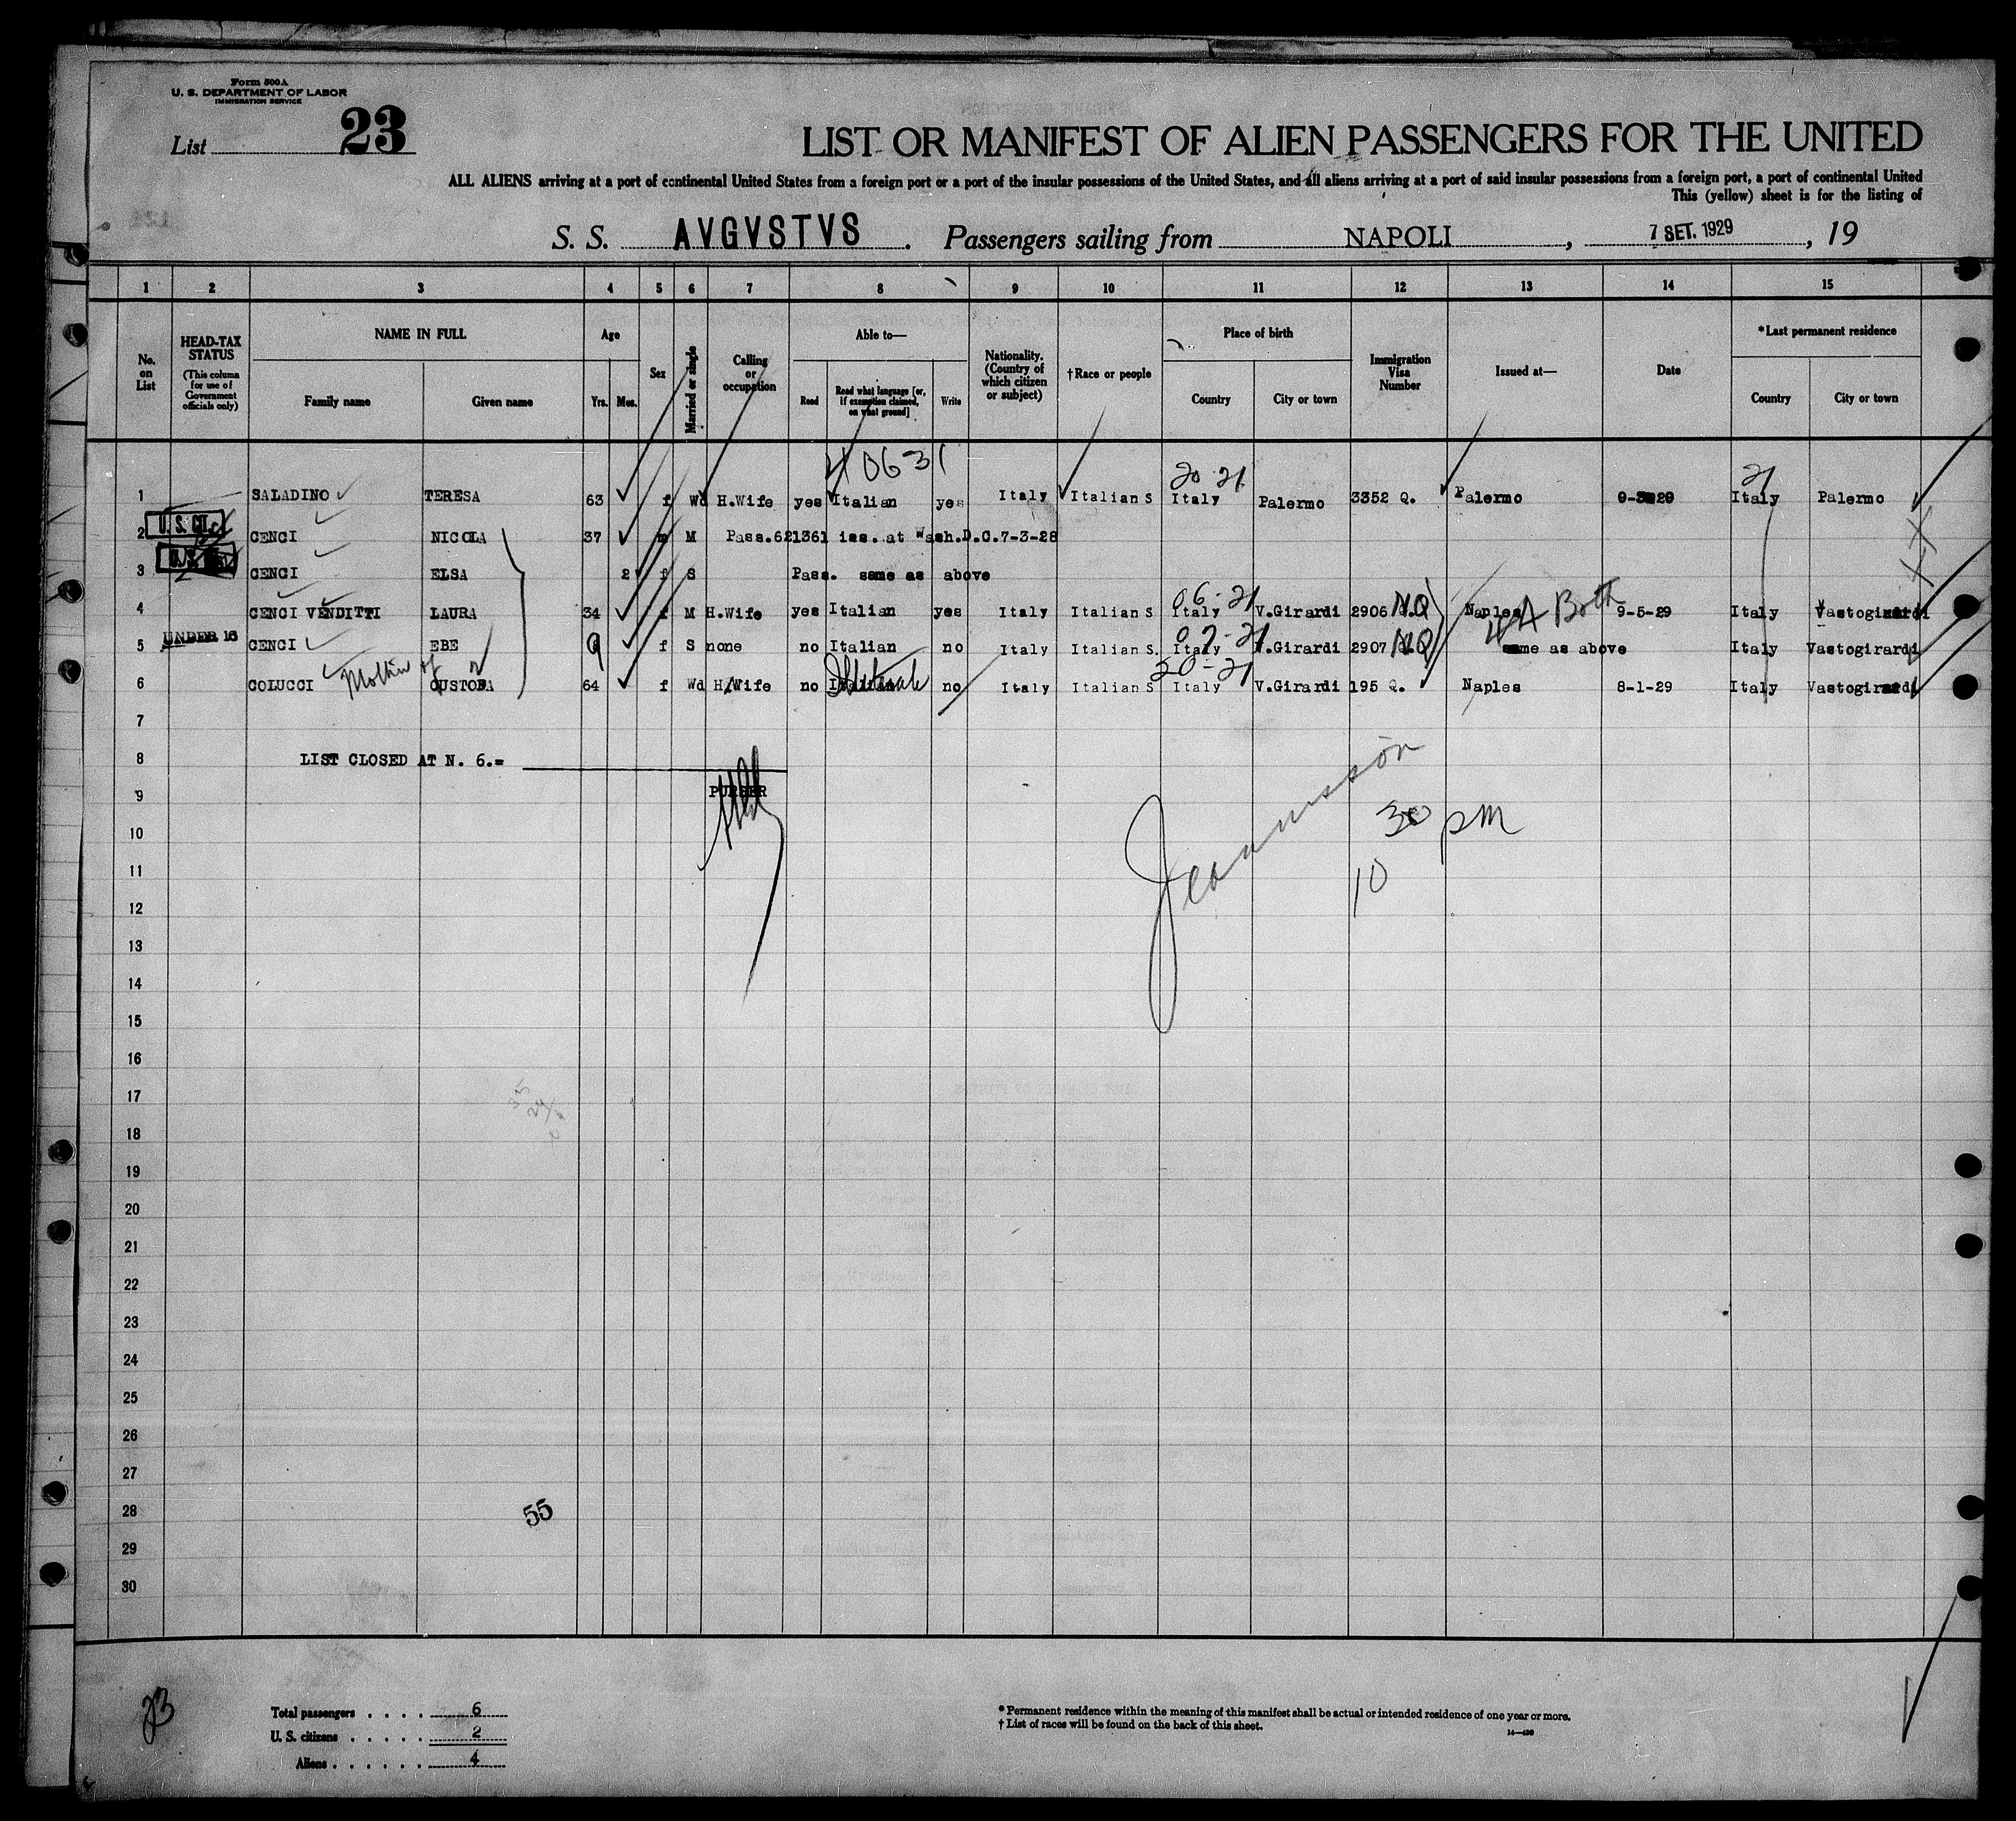 Form 500A
U. S. DEPARTMENT OF LABOR
IMMIGRATION SERVICE
List 23
LIST OR MANIFEST OF ALIEN PASSENGERS FOR THE UNITED
ALL ALIENS arriving at a port of continental United States from a foreign port or a port of the insular possessions of the United States, and all aliens arriving at a port of said insular possessions from a foreign port, a port of continental United
This (yellow) sheet is for the listing of
S. S. AVGVSTVS. Passengers sailing from NAPOLI, 7 SET. 1929, 19
1 2 3 4 5 6 7 8 9 10 11 12 13 14 15
No. on List
HEAD-TAX STATUS
(This column for use of Government officials only)
NAME IN FULL
Family name Given name
Age
Yrs. Mos.
Sex
Married or single
Calling or occupation
Able to—
Read Read what language [or, if exemption claimed, on what ground] Write
Nationality. (Country of which citizen or subject)
†Race or people
Place of birth
Country City or town
Immigration Visa Number
Issued at—
Date
*Last permanent residence
Country City or town
20 21 21
1 SALADINO TERESA 63 f Wd H.Wife yes Italian yes Italy Italian S Italy Palermo 3352 Q. Palermo Italy Palermo
2 U.S. CIT. CENCI NICOLA 37 m M Pass.621361 iss. at Wash.D.C.7-3-28
3 CENCI ELSA 2 f S Pass. same as above
06-21
4 CENCI VENDITTI LAURA 34 f M H.Wife yes Italian yes Italy Italian S Italy V.Girardi 2906 NQ Naples 4A Both 9-5-29 Italy Vastogirardi
5 UNDER 16 CENCI EBE 9 f S none no Italian no Italy Italian S Italy V.Girardi 2907 NQ same as above Italy Vastogirardi
Mother of 2
20-21
6 COLUCCI 64 f Wd H.Wife no Illiterate no Italy Italian S Italy V.Girardi 195 Q. Naples 8-1-29 Italy Vastogirardi
7
8 LIST CLOSED AT N. 6.=
9 PURSER
30 pm
10
11
10
12
13
14
15
16
17
18
19
20
21
22
23
24
25
26
27
28 55
29
30
23
Total passengers . . . . 6
U. S. citizens . . . . . 2
Aliens . . . . . . 4
* Permanent residence within the meaning of this manifest shall be actual or intended residence of one year or more.
† List of races will be found on the back of this sheet.